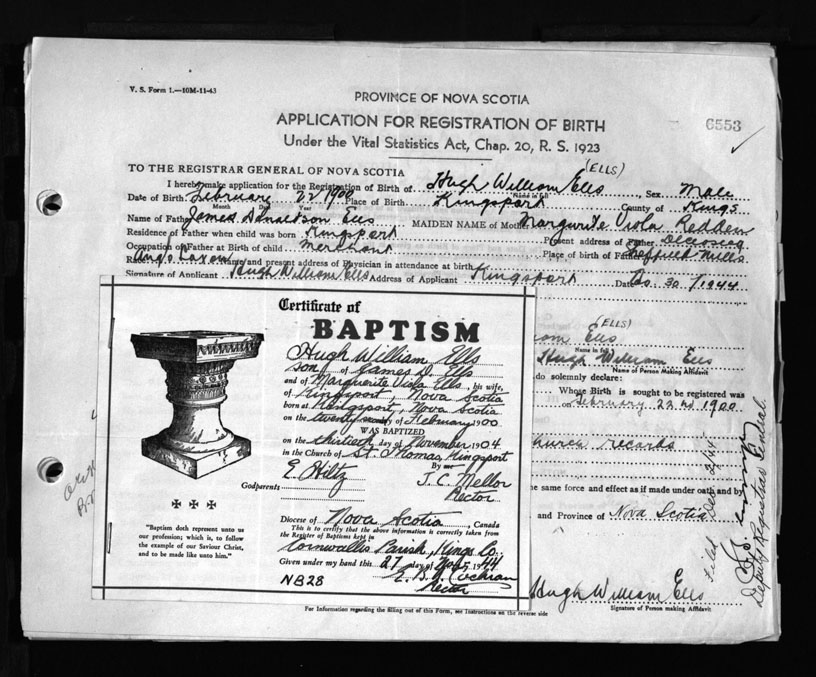 V. S. Form 1.—10M-11-43
PROVINCE OF NOVA SCOTIA
6553
APPLICATION FOR REGISTRATION OF BIRTH
Under the Vital Statistics Act, Chap. 20, R. S. 1923
(ELLS)
TO THE REGISTRAR GENERAL OF NOVA SCOTIA
I hereby make application for the Registration of Birth of Hugh William Ells, Sex Male
Name in full
Date of Birth February 22 1900 Place of Birth Kingsport County of Kings
Month Day Year
Name of Father James Donaldson Ells MAIDEN NAME of Mother Margurite Viola Redden
Residence of Father when child was born Kingsport Present address of Father Deceased
Occupation of Father at Birth of child Merchant Place of birth of Father Sheffield Mills
Race Anglo Saxon Name and present address of Physician in attendance at birth
Signature of Applicant Hugh William Ells Address of Applicant Kingsport Date 30/1944
Certificate of
BAPTISM
Hugh William Ells
son of James D. Ells
and of Marguerite Viola Ells, his wife,
of Kingsport, Nova Scotia
born at Kingsport, Nova Scotia
on the twenty second day of February 1900
WAS BAPTIZED
on the thirtieth day of November 1904
in the Church of St. Thomas, Kingsport
By me
E. Hiltz J. C. Mellor
Godparents Rector
Diocese of Nova Scotia, Canada
This is to certify that the above information is correctly taken
from the Register of Baptisms kept in
Cornwallis Parish, Kings Co.
Given under my hand this 27 day of Nov 1944
Cochran
Rector
NB28
"Baptism doth represent unto us
our profession; which is, to follow
the example of our Saviour Christ,
and to be made like unto him."
(ELLS)
Ells
Name in full
Hugh William Ells
Name of Person Making Affidavit
do solemnly declare:
Whose Birth is sought to be registered was
on February 22nd 1900
church records
same force and effect as if made under oath and by
and Province of Nova Scotia
Filed Dec
Deputy Registrar General.
Hugh William Ells
Signature of Person making Affidavit
For Information regarding the filling out of this Form, see Instructions on the reverse side